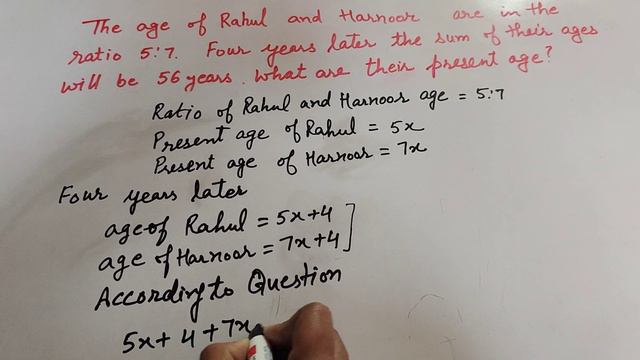 The age of Rahul and Harnoor are in the
ratio 5:7. Four years later the sum of their ages
will be 56 years. What are their present age?
Ratio of Rahul and Harnoor age = 5:7
Present age of Rahul = 5x
Present age of Harnoor = 7x
Four years later
age of Rahul = 5x+4
age of Harnoor = 7x+4
According to Question
5x+4+7x